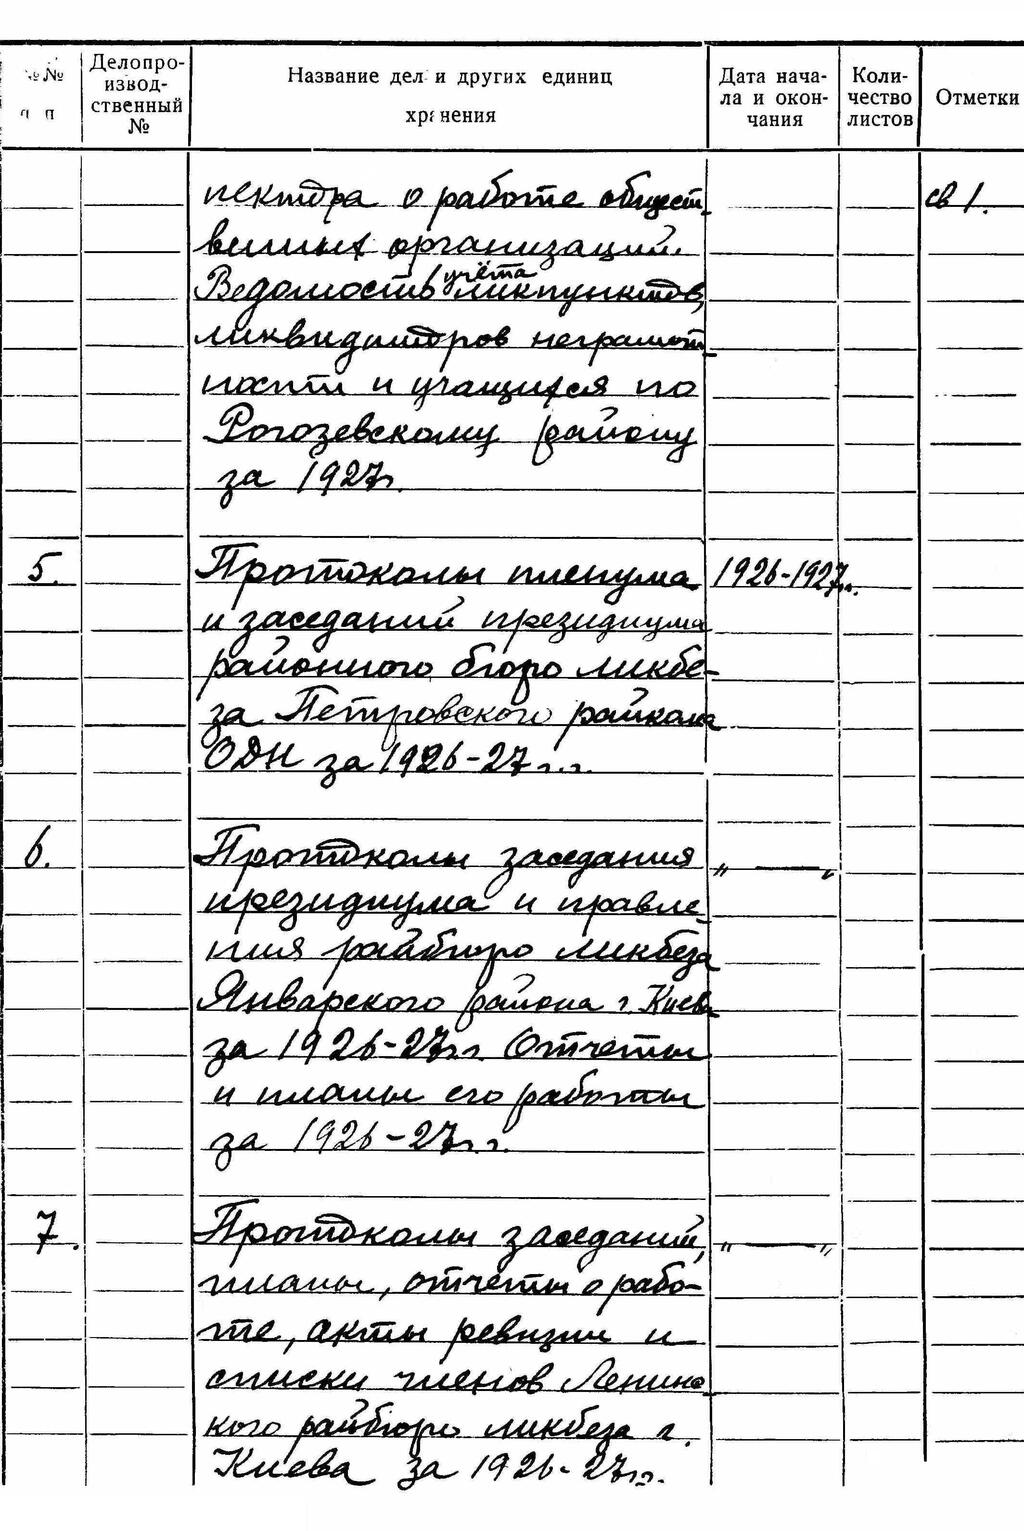 №№ п п
Делопро-
извод-
ственный
№
Название дел и других единиц
хранения
Дата нача-
ла и окон-
чания
Коли-
чество
листов
Отметки
пектора о работе общест-
венных организаций.
св 1.
учёта
Ведомость ликпунктов,
ликвидаторов неграмот-
ности и учащихся по
Рогозевскому району
за 1927г.
5. Протоколы пленума 1926-1927г.г.
и заседаний президиума
районного бюро ликбе-
за Петровского райкома
ОДН за 1926-27 г.г.
6. Протоколы заседания „ — „
президиума и правле-
ния райбюро ликбеза
Январского района г. Киева
за 1926-27г.г. Отчеты
и планы его работы
за 1926-27г.г.
7. Протоколы заседаний, „ — „
планы, отчеты о рабо-
те, акты ревизии и
списки членов Ленинс-
кого райбюро ликбеза г.
Киева за 1926-27г.г.